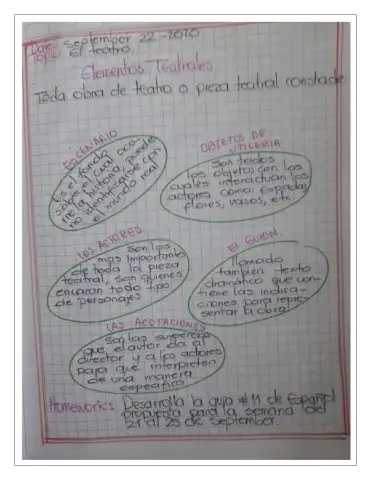 Date: September 22-2020
Topic: El teatro.
Elementos Teatrales
Toda obra de teatro o pieza teatral consta de:
ESCENARIO
Es el fondo
sobre el cual ocu-
rre la historia, puede
no identificarse con
el mundo real
OBJETOS DE
UTILERIA
Son todos
los objetos con los
cuales interactuan los
actores como: Espadas,
flores, vasos, etc.
LOS ACTORES
Son los
mas importantes
de toda la pieza
teatral, son quienes
encarnan todo tipo
de personajes
EL GUION.
llamado
tambien texto
dramatico que con-
tiene las indica-
ciones para repre-
sentar la obra.
LAS ACOTACIONES
Son las sugerencias
que el autor da al
director y a los actores
para que interpreten
de una manera
especifica.
Homework: Desarrolla la guia #11 de Español
propuesta para la semana del
21 al 25 de September.